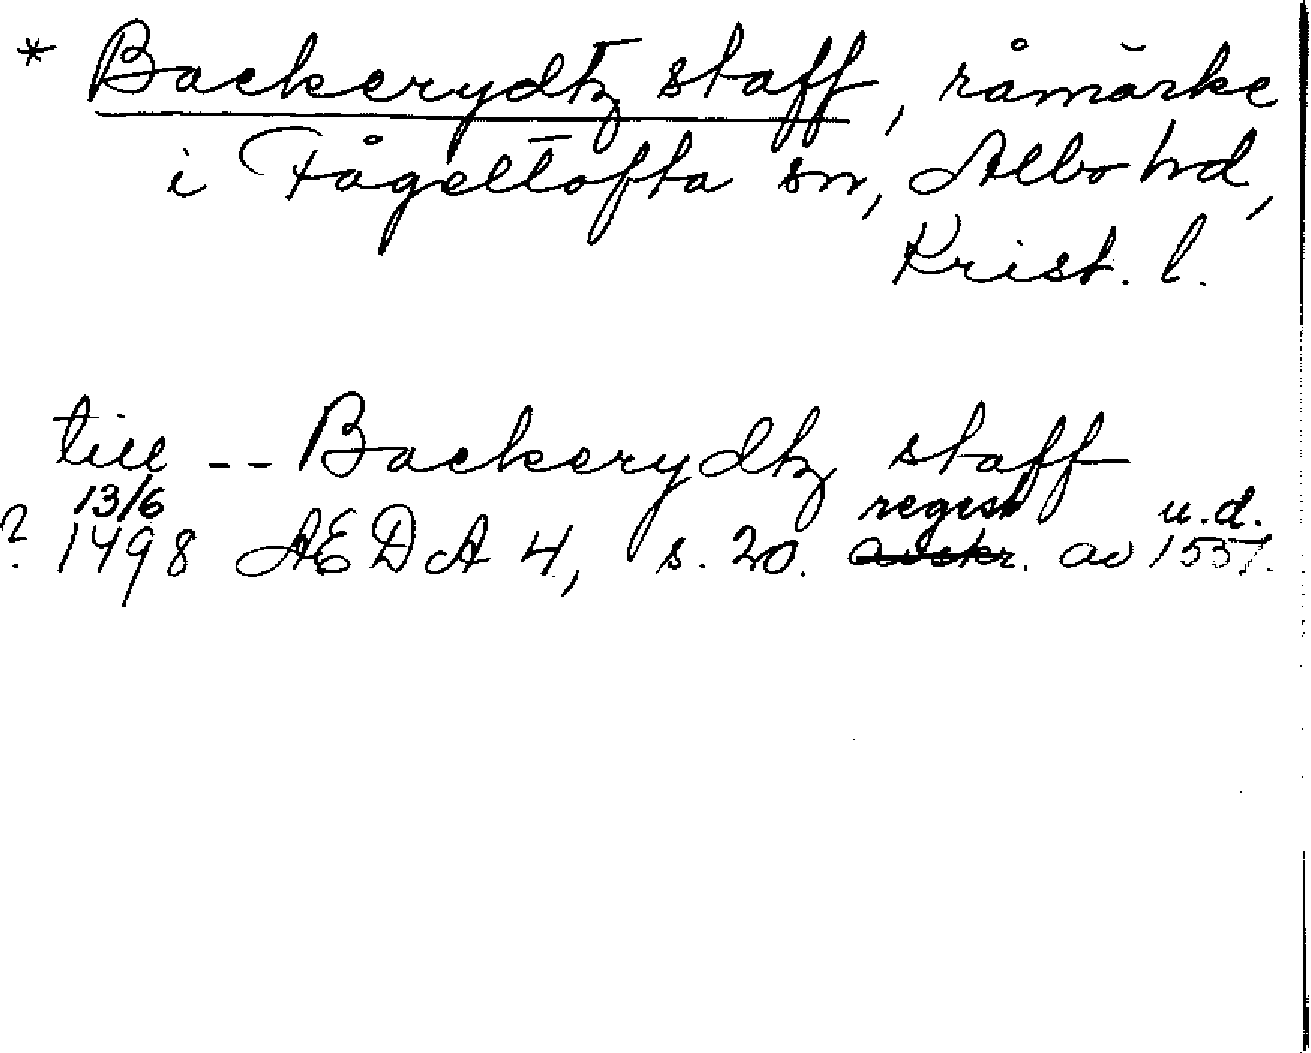 * Backerydtz staff, råmärke
i Fågeltofta sn, Albo hd,
Krist. l.
till -- Backerydtz staff
13/6 regest u.d.
? 1498 AEDA 4, s. 20. avskr. av 1557.